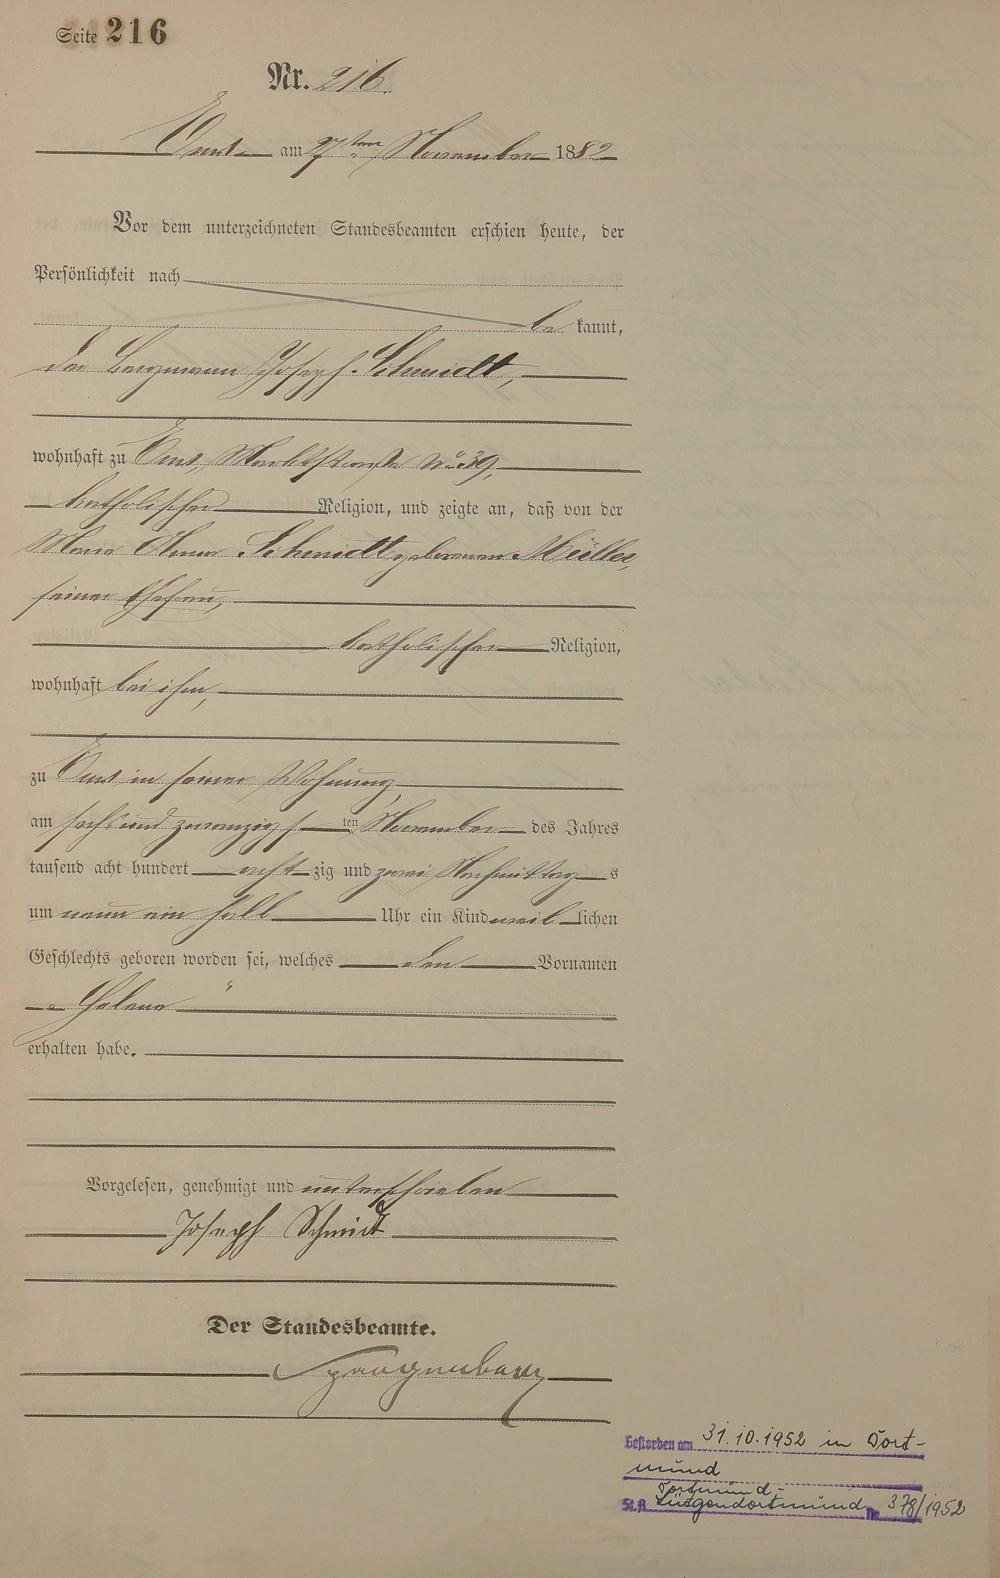 Seite 216
Nr. 216.
Ems am 27ten November 1882
Vor dem unterzeichneten Standesbeamten erschien heute, der
Persönlichkeit nach
be kannt,
der Bergmann Joseph Schmidt,
wohnhaft zu Ems, Marktstraße No 39,
katholischer Religion, und zeigte an, daß von der
Maria Anna Schmidt geborenen Müller,
seiner Ehefrau,
katholischer Religion,
wohnhaft bei ihm,
zu Ems in seiner Wohnung,
am sechs und zwanzigs ten November des Jahres
tausend acht hundert acht zig und zwei Nachmittag s
um neun ein halb Uhr ein Kind weib lichen
Geschlechts geboren worden sei, welches den Vornamen
„Helene“
erhalten habe.
Vorgelesen, genehmigt und unterschrieben
Joseph Schmidt
Der Standesbeamte.
Gestorben am 31.10.1952 in Dort-
mund
Dortmund-
St.A. Lütgendortmund Nr. 378/1952